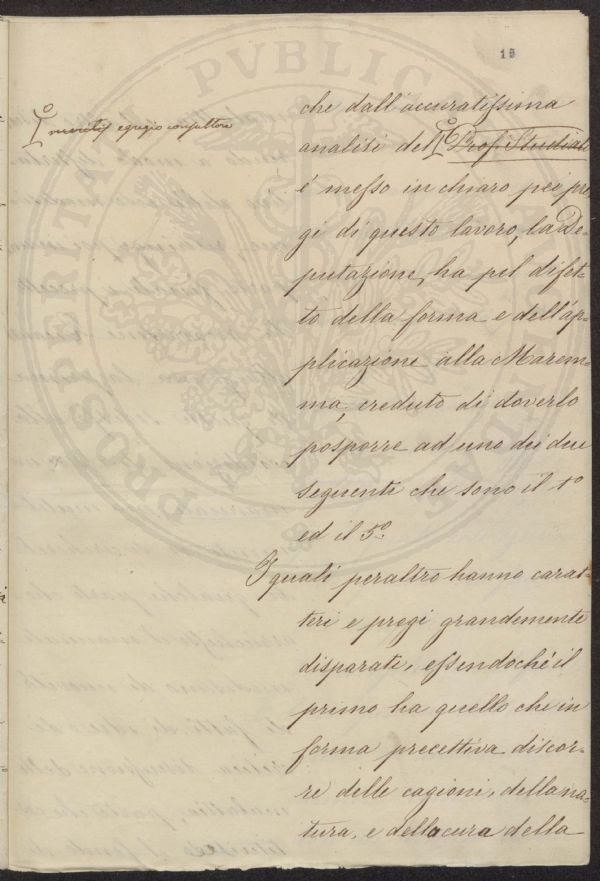 15
egregio consultore
che dall'accuratissima
analisi del Prof. Studiati
é messo in chiaro pei pre
gi di questo lavoro, la De-
putazione, ha pel difet-
to della forma e dell'ap-
plicazione alla Marem-
ma, creduto di doverlo
posporre ad uno dei due
seguenti che sono il 4º
ed il 5º.
I quali peraltro hanno carat-
teri e pregi grandemente
disparati, essendoché il
primo ha quello che in
forma precettiva discor-
re delle cagioni, della na-
tura, e della cura della
PROSPERITATI PVBLICAE